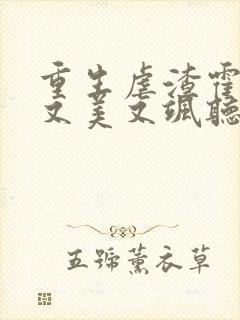 重生虐渣霍
又美又飒聽
五蹄薰衣草